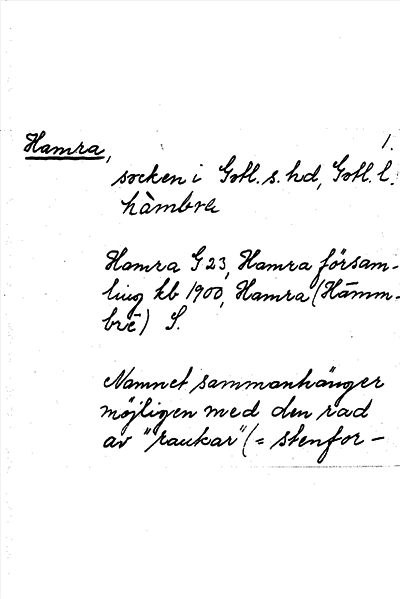 Hamra, 1.
socken i Gotl. s. hd, Gotl. l.
hàmbra
Hamra G 23, Hamra försam-
ling kb 1900, Hamra (Hämm-
brē) S.
Namnet sammanhänger
möjligen med den rad
av "raukar" (= stenfor-